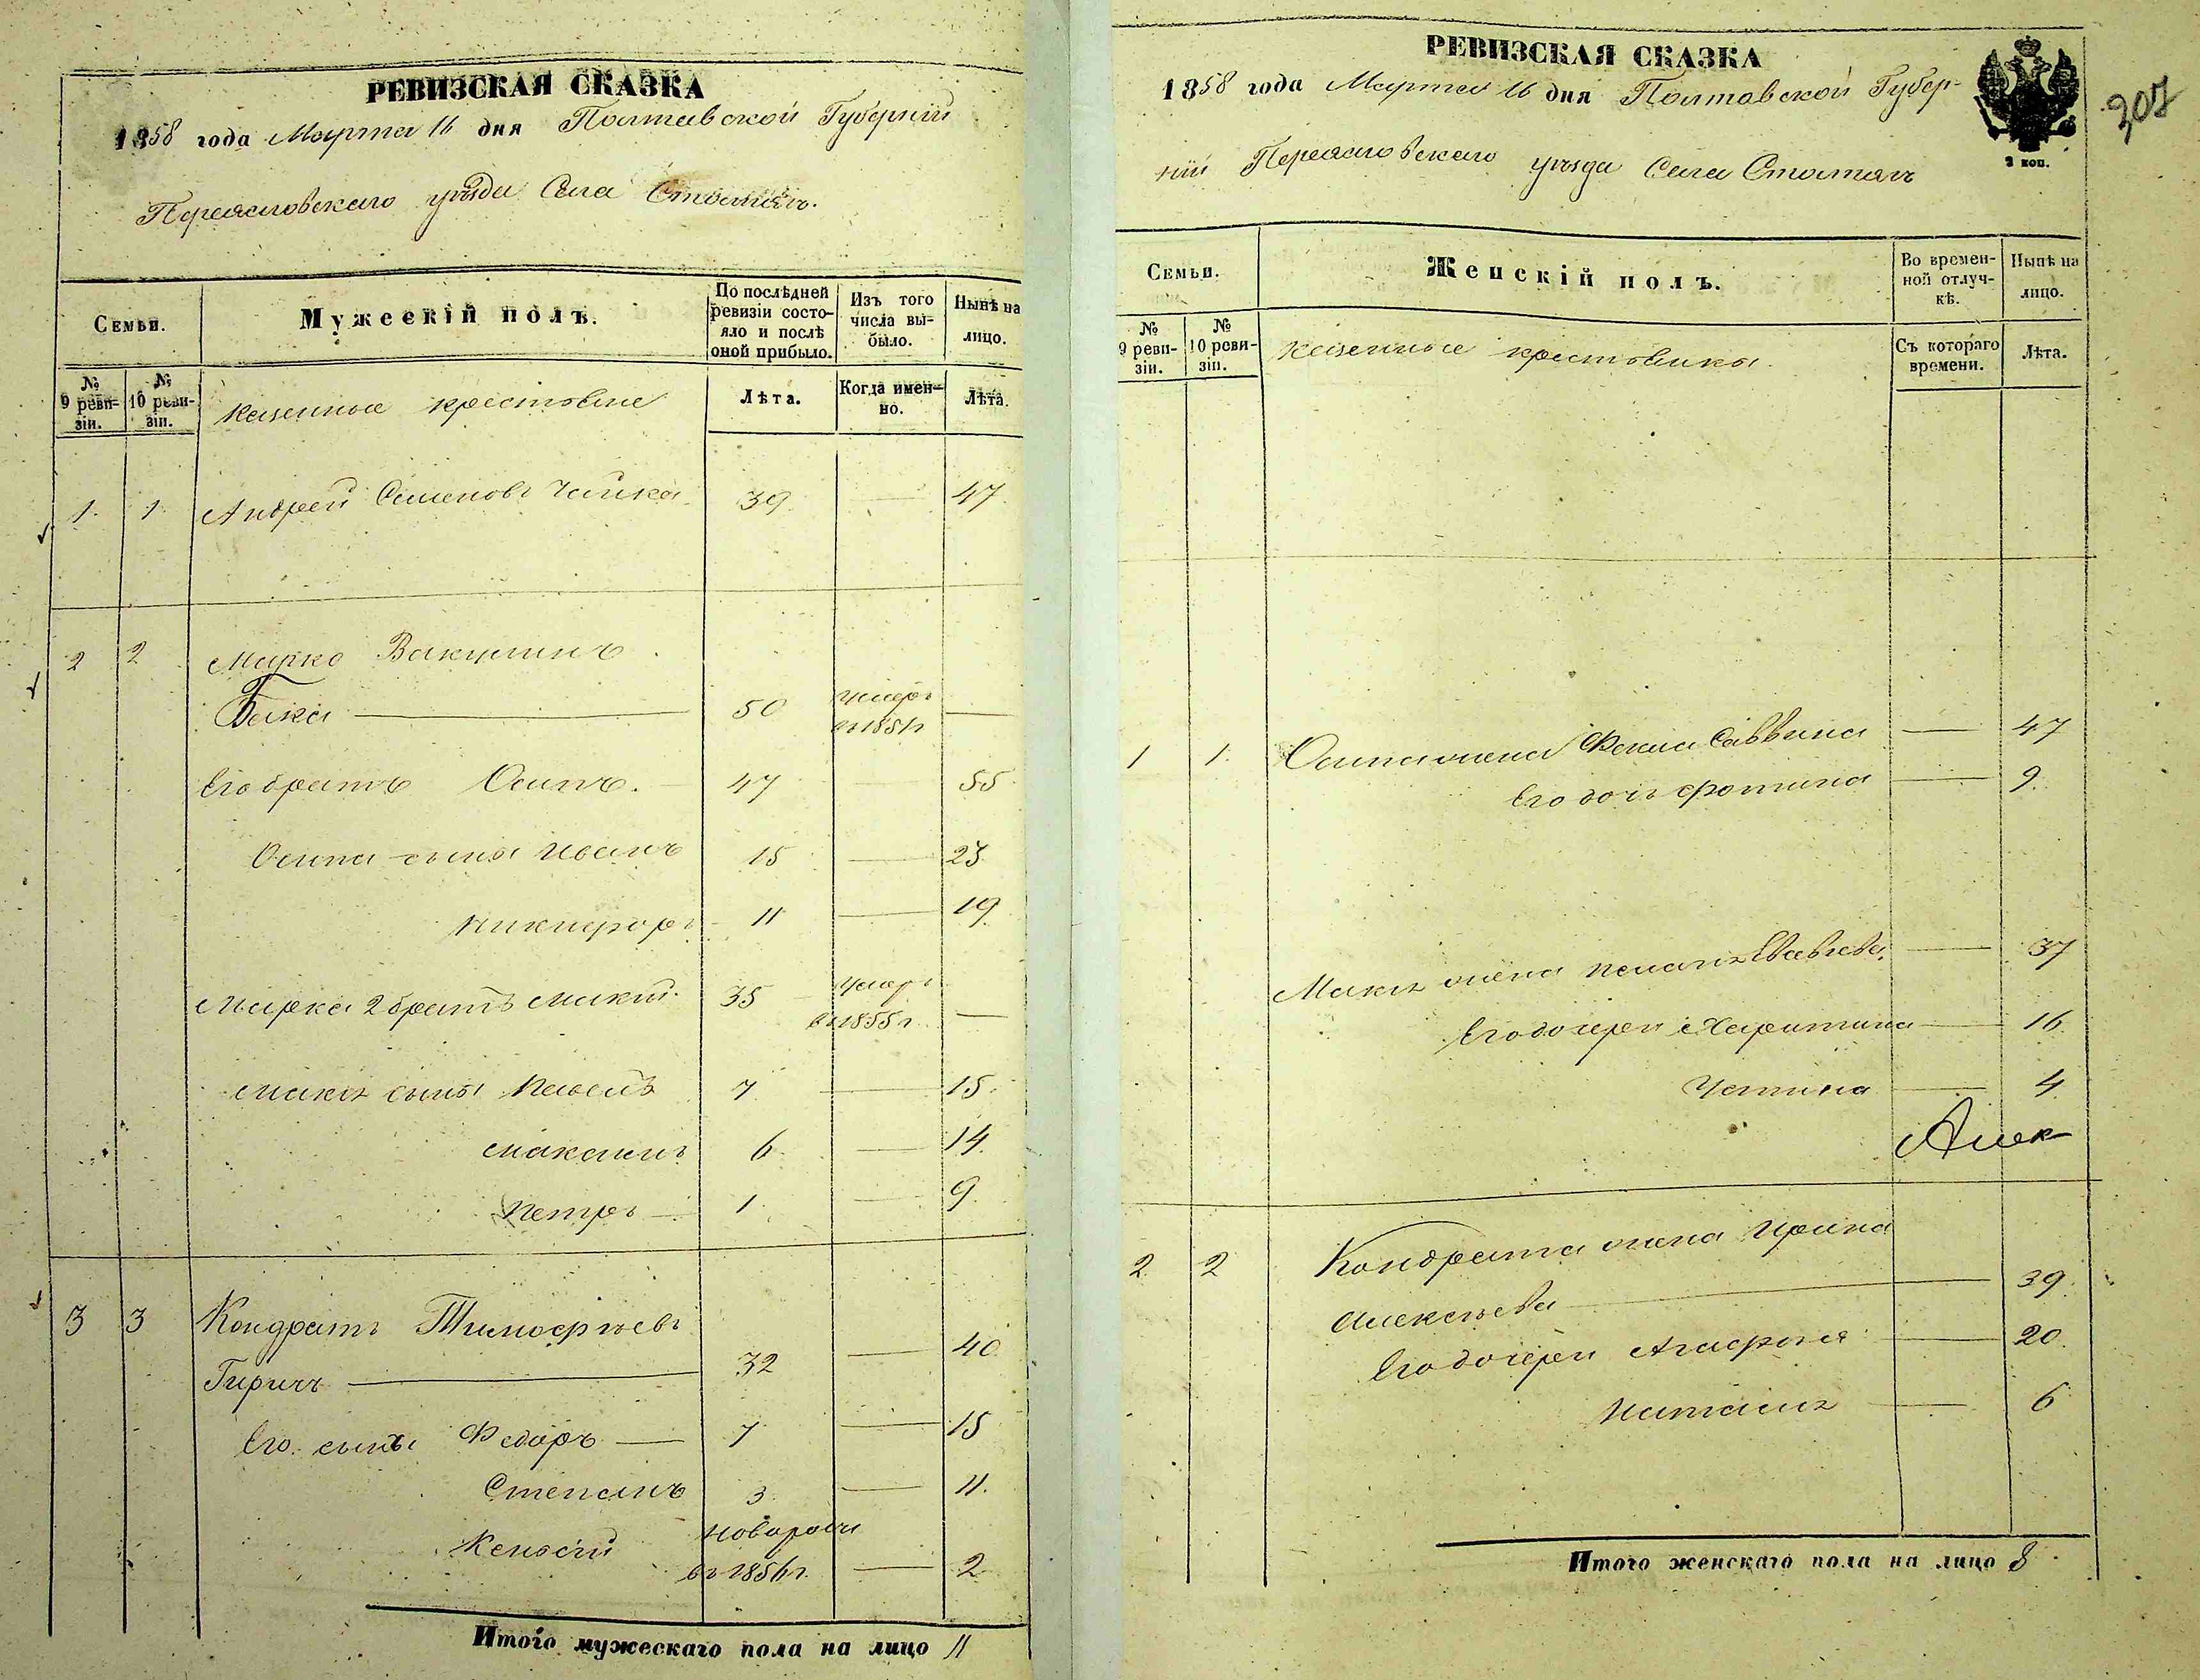 РЕВИЗСКАЯ СКАЗКА
1858 года Марта 16 дня Полтавской Губерніи
Переясловскаго уѣзда Села Столпягъ.
Семьи.
Мужескій полъ.
По послѣдней ревизіи состояло и послѣ оной прибыло.
Изъ того числа выбыло.
Нынѣ на лицо.
№ 9 ревизіи.
№ 10 ревизіи.
Казенные крестьяне
Лѣта.
Когда именно.
Лѣта.
1. 1. Андрей Семеновъ Чайка 39 — 47
2 2 Марко Вакулинъ
Бака — 50 умеръ въ 1851г —
Его братъ Осипъ. 47 — 55
Осипа сыны Иванъ 15 — 23
Никифоръ 11 — 19
Марка 2 братъ Мокій 35 умеръ въ 1855г. —
Мокія сыны Павелъ 7 — 15
Максимъ 6 — 14
Петръ — 1 — 9
3 3 Кондратъ Тимофѣевъ
Гиричъ — 32 — 40
Его сыны Федоръ — 7 — 15
Степанъ 3 — 11.
новорож
въ 1856г. — 2
Итого мужескаго пола на лицо 11
РЕВИЗСКАЯ СКАЗКА
1858 года Марта 16 дня Полтавской Губер-
ніи Переясловскаго уѣзда Села Столпягъ
2 коп.
307
Семьи.
Женскій полъ.
Во временной отлучкѣ.
Нынѣ на лицо.
№ 9 ревизіи.
№ 10 ревизіи.
Казенные крестьянки.
Съ котораго времени.
Лѣта.
1 1. Осипа жена Фекла Саввина — 47
Его дочь Фотина — 9.
Мокія жена Пелагія — 37
Его дочери Харитина — 16
Устина — 4
2 2 Кондрата жена Ирина
Алексѣева — 39
Его дочери Агафія — 20
Наталія — 6
Итого женскаго пола на лицо 8